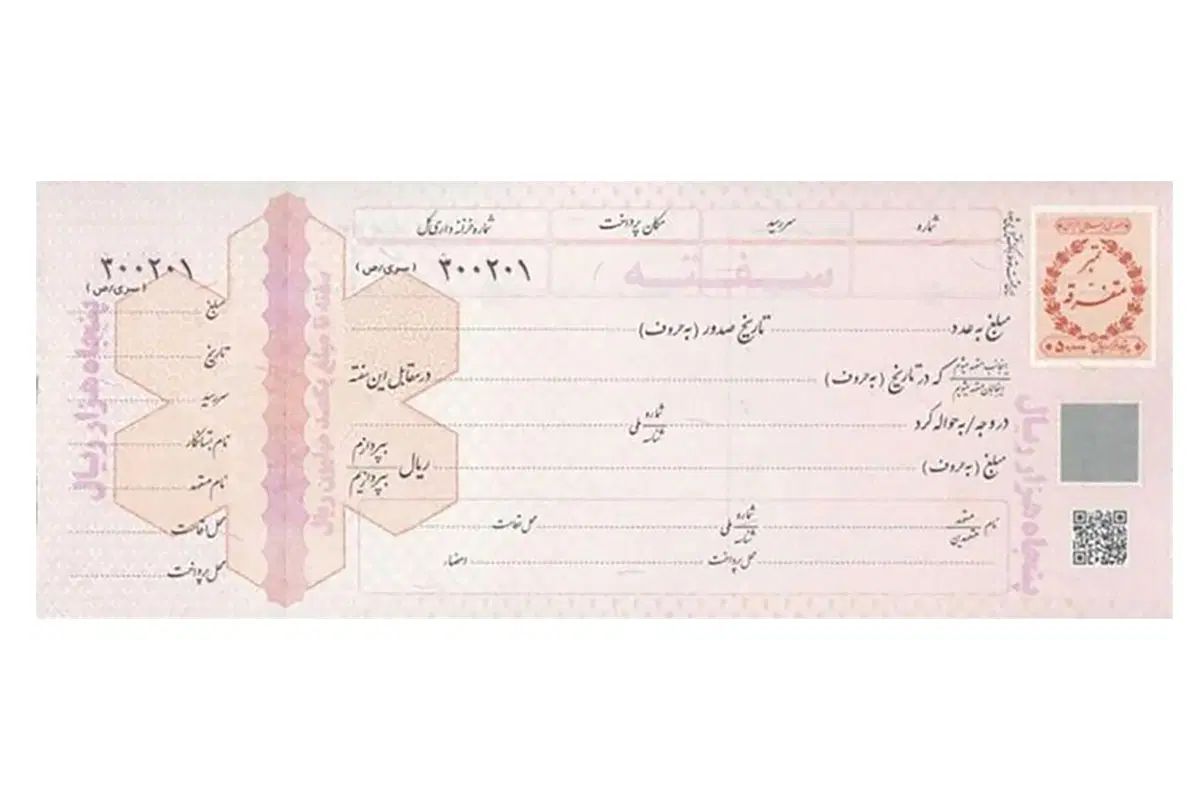 شماره سررسید مکان پرداخت شماره خزانه‌داری کل
سفته
۳۰۰۲۰۱ (سری/ص)
مبلغ به عدد تاریخ صدور (به حروف)
اینجانب متعهد میشوم / اینجانبان متعهد میشویم که در تاریخ (به حروف) در مقابل این سفته
در وجه / به حواله کرد شماره / شناسه ملی
مبلغ (به حروف) ریال بپردازم / بپردازیم
نام متعهد / متعهدین شماره / شناسه ملی محل اقامت
محل پرداخت امضاء
تمبر
متفرقه
پنجاه هزار ریال
پنجاه هزار ریال
سفته تا مبلغ یکصد میلیون ریال
۳۰۰۲۰۱
(سری/ص)
مبلغ
تاریخ
سررسید
نام بستانکار
نام متعهد
محل اقامت
محل پرداخت
پنجاه هزار ریال